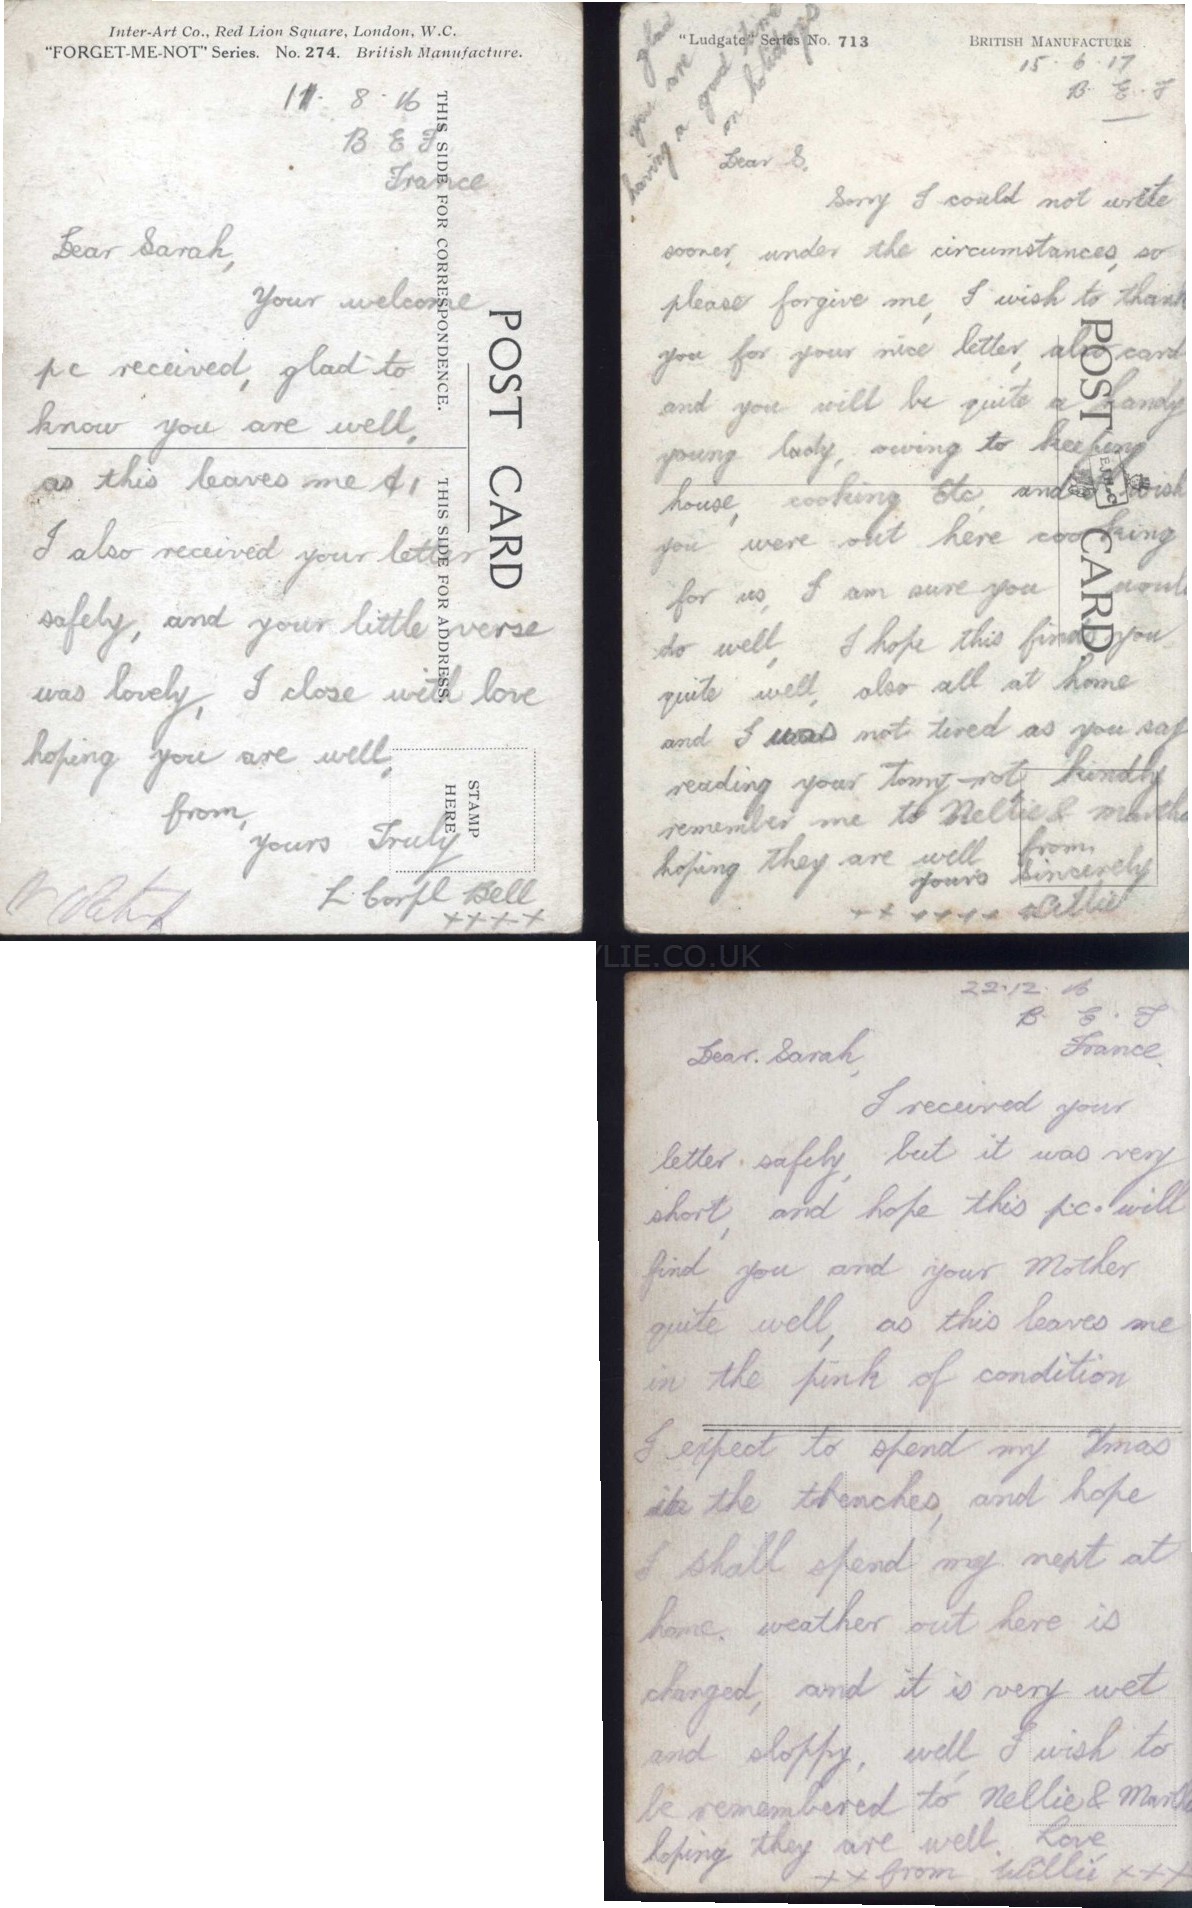 Inter-Art Co., Red Lion Square, London, W.C.
"FORGET-ME-NOT" Series. No. 274. British Manufacture.
11. 8. 16
B E F
France
Dear Sarah,
Your welcome
pc received, glad to
know you are well,
as this leaves me A1
I also received your letter
safely, and your little verse
was lovely, I close with love
hoping you are well,
from,
yours Truly
L. Corpl Bell
++++
THIS SIDE FOR CORRESPONDENCE.
THIS SIDE FOR ADDRESS.
POST CARD
STAMP
HERE
"Ludgate" Series No. 713
BRITISH MANUFACTURE
15. 6. 17
B. E. F
glad
you are
having a good time
on holidays
Dear S,
Sorry I could not write
sooner, under the circumstances, so
please forgive me, I wish to thank
you for your nice letter, also card
and you will be quite a handy
young lady, owing to keeping
house, cooking Etc, and wish
you were out here cooking
for us, I am sure you would
do well, I hope this finds you
quite well, also all at home
and I was not tired as you say
reading your tomy-rot, kindly
remember me to Nellie & Martha
hoping they are well
from
yours Sincerely
++ ++++ Willie
POST CARD.
YLIE.CO.UK
22.12.16
B. E. F
France.
Dear. Sarah,
I received your
letter safely, but it was very
short, and hope this p.c. will
find you and your Mother
quite well, as this leaves me
in the pink of condition
I expect to spend my Xmas
in the trenches, and hope
I shall spend my next at
home. weather out here is
changed, and it is very wet
and sloppy, well, I wish to
be remembered to Nellie & Martha
hoping they are well. Love
++ from Willie +++